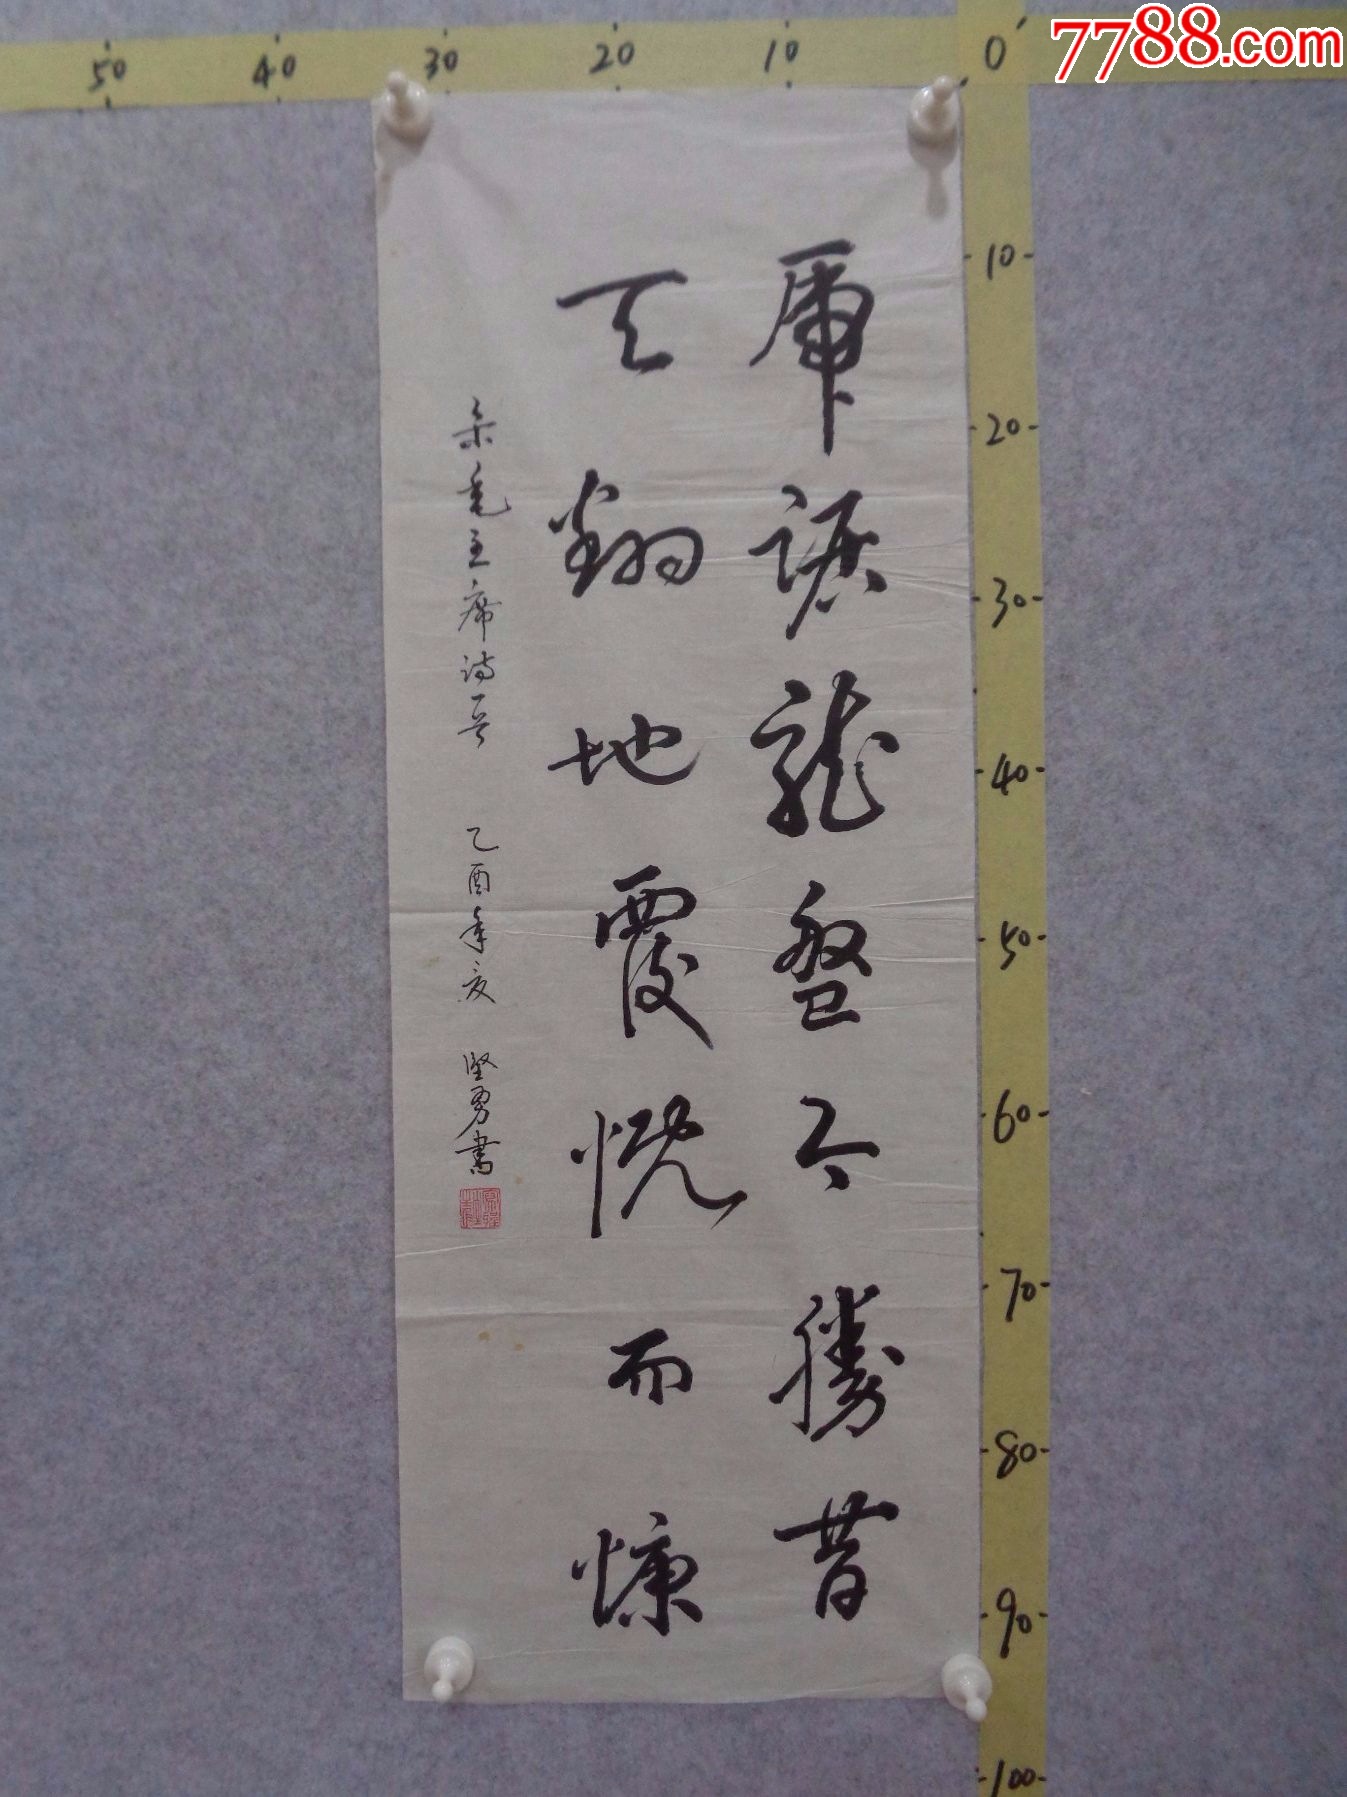 50 40 30 20 10 0
7788.com
虎踞龍盤今勝昔
天翻地覆慨而慷
录毛主席诗 乙酉年夏 坚勇書
10
20
30
40
50
60
70
80
90
100